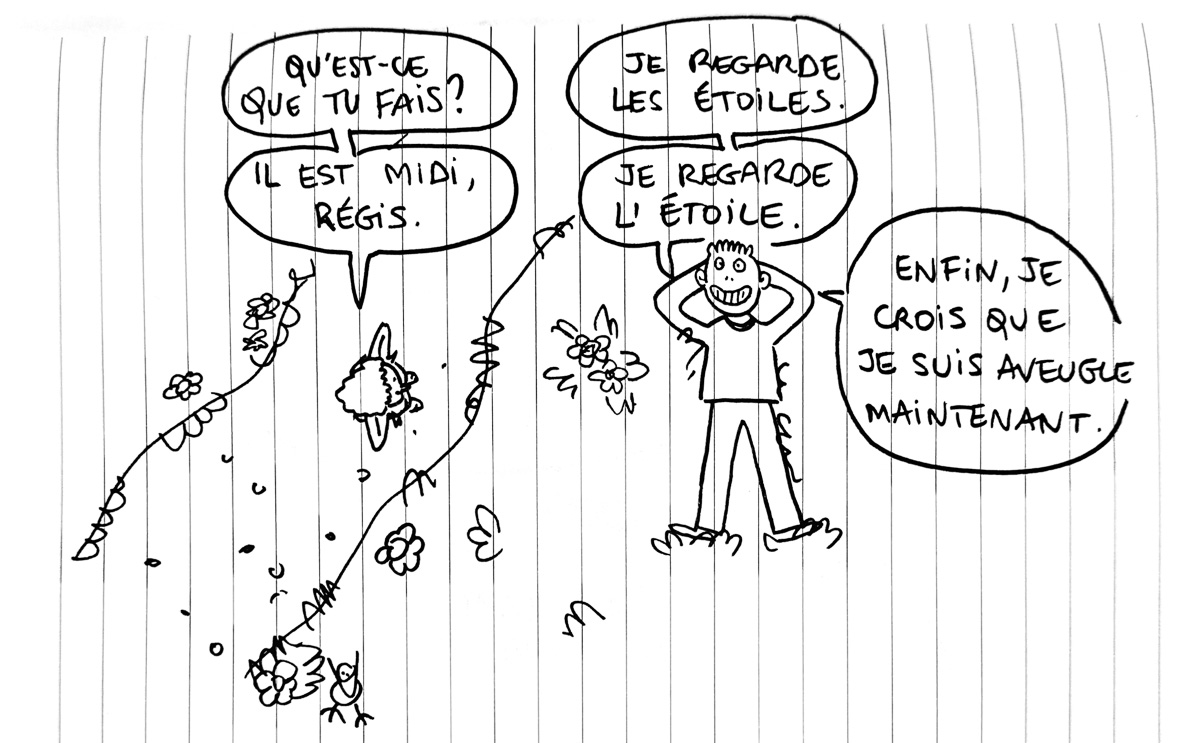 QU'EST-CE
QUE TU FAIS?
JE REGARDE
LES ÉTOILES.
IL EST MIDI,
RÉGIS.
JE REGARDE
L'ÉTOILE.
ENFIN, JE
CROIS QUE
JE SUIS AVEUGLE
MAINTENANT.